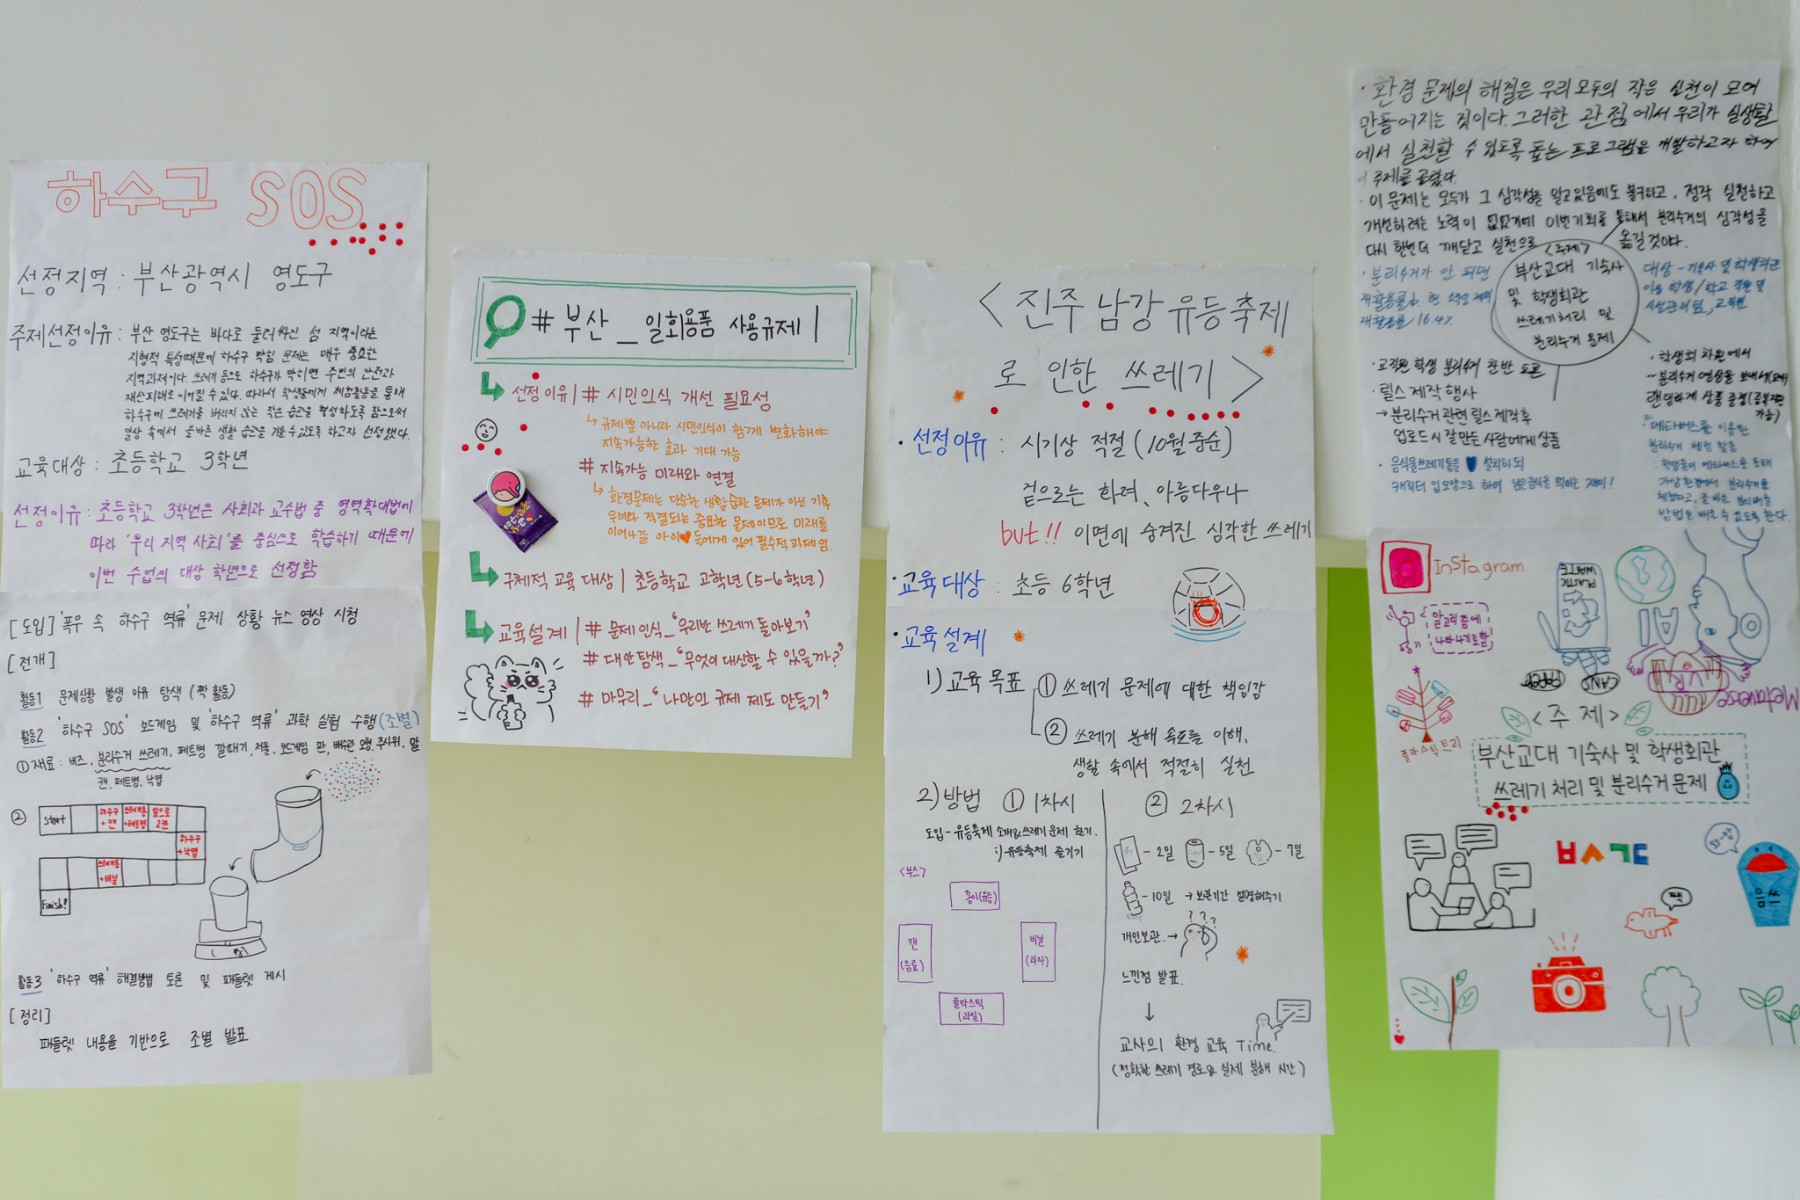 하수구 SOS
선정지역 : 부산광역시 영도구
주제선정이유 : 부산 영도구는 바다로 둘러싸인 섬 지역이라는
지형적 특성때문에 하수구 막힘 문제는 매우 중요한
지역과제이다. 쓰레기 등으로 하수구가 막히면 주민의 안전과
재산피해로 이어질 수 있다. 따라서 학생들에게 체험활동을 통해
하수구에 쓰레기를 버리지 않는 작은 습관을 형성하도록 함으로써
일상 속에서 올바른 생활 습관을 기를 수 있도록 하고자 선정했다.
교육대상 : 초등학교 3학년
선정이유 : 초등학교 3학년은 사회과 교수법 중 영역확대법에
따라 '우리 지역 사회'를 중심으로 학습하기 때문에
이번 수업의 대상 학년으로 선정함
[도입] '폭우 속 하수구 역류' 문제 상황 뉴스 영상 시청
[전개]
활동1 문제상황 발생 이유 탐색 (짝 활동)
활동2 '하수구 SOS' 보드게임 및 '하수구 역류' 과학 실험 수행(조별)
①재료 : 비즈, 분리수거 쓰레기, 페트병 깔때기, 저울, 보드게임 판, 배수관 모형, 주사위, 말
캔, 페트병, 낙엽
②
start
하수구 +캔
쓰레기통 +페트병
앞으로 2칸
하수구 +낙엽
쓰레기통 +비닐
Finish!
활동3 '하수구 역류' 해결방법 토론 및 패들렛 게시
[정리]
패들렛 내용을 기반으로 조별 발표
# 부산 _ 일회용품 사용규제 |
선정이유 | # 시민의식 개선 필요성
규제뿐 아니라 시민의식이 함께 변화해야
지속가능한 효과 기대 가능
# 지속가능 미래와 연결
환경문제는 단순한 생활습관 문제가 아닌 기후
위기와 직결되는 중요한 문제이므로 미래를
이어나갈 아이♥들에게 있어 필수적 과제임.
구체적 교육 대상 | 초등학교 고학년 (5-6학년)
교육설계 | # 문제 인식_'우리반 쓰레기 돌아보기'
# 대안탐색_'무엇이 대신할 수 있을까?'
# 마무리_'나만의 규제 제도 만들기'
< 진주 남강 유등축제
로 인한 쓰레기 >
· 선정이유 : 시기상 적절 (10월 중순)
겉으로는 화려, 아름다우나
but!! 이면에 숨겨진 심각한 쓰레기
· 교육대상 : 초등 6학년
· 교육설계
1) 교육 목표 ① 쓰레기 문제에 대한 책임감
② 쓰레기 분해 속도를 이해,
생활 속에서 적절히 실천
2) 방법 ① 1차시
도입 - 유등축제 소개&쓰레기 문제 찾기.
i) 유등축제 즐기기
<부스>
종이(유등)
캔
(음료)
비닐
(과자)
플라스틱
(과일)
② 2차시
- 2일
- 5일
- 7일
- 10일 → 보관기간 설명해주기
개인보관. →
? ? ?
느낀점 발표.
↓
교사의 환경 교육 Time.
(정확한 쓰레기 경로와 실제 분해 시간)
· 환경 문제의 해결은 우리 모두의 작은 실천이 모여
만들어지는 것이다. 그러한 관점에서 우리가 실생활
에서 실천할 수 있도록 돕는 프로그램을 개발하고자 하여
이 주제를 골랐다.
· 이 문제는 모두가 그 심각성을 알고있음에도 불구하고, 정작 실천하고
개선하려는 노력이 없었기에 이번기회를 통해서 분리수거의 심각성을
다시 한번 더 깨닫고 실천으로 옮길것이다.
<주제>
부산교대 기숙사
및 학생회관
쓰레기처리 및
분리수거 문제
· 분리수거가 안 되면
재활용률 16.4%
대상 - 기숙사 및 학생회관
이용 학생/학교 직원 및
· 교직원 학생 분리수거 찬반 토론
· 릴스 제작 행사
→ 분리수거 관련 릴스 제작 후
업로드시 잘만든 사람에게 상품
· 음식물쓰레기통을 설치하되
캐릭터 입모양으로 하여
· 학생회 차원에서
분리수거 영상을
랜덤하게 상품 증정
메타버스를 이용한
분리수거 체험 활동
방법을 배울 수 있도록 한다.
Instagram
알고리즘에
플라스틱 트리
PLASTIC WASTE
PAPER
CANS
AI
VR
Metaverse
<주제>
부산교대 기숙사 및 학생회관
쓰레기 처리 및 분리수거 문제
ㅂㅅㄱㄷ
음쓰
짹짹